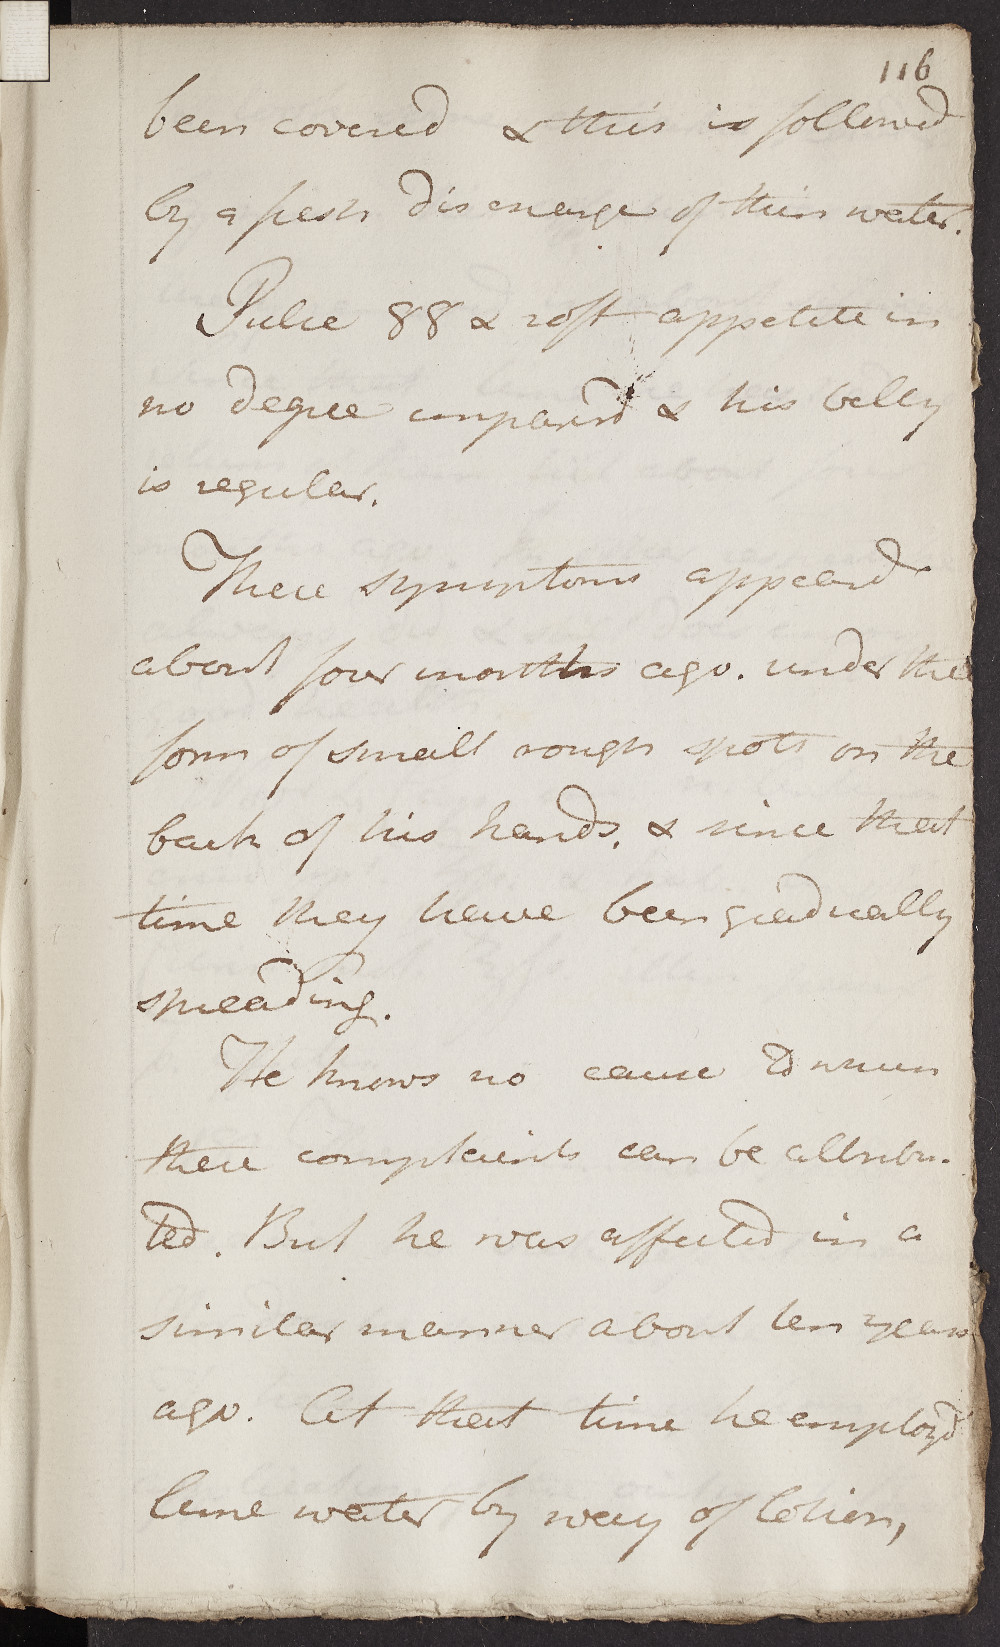 116
been covered & this is followed
by a fresh discharge of thin water.
Pulse 88 & soft appetite in
no degree impaird & his belly
is regular.
These symptoms appeard
about four months ago. under the
form of small rough spots on the
back of his hands, & since that
time they have been gradually
spreading.
He knows no cause to which
these complaints can be attribu-
ted. But he was affected in a
similar manner about ten years
ago. At that time he employd
lime water by way of lotion,